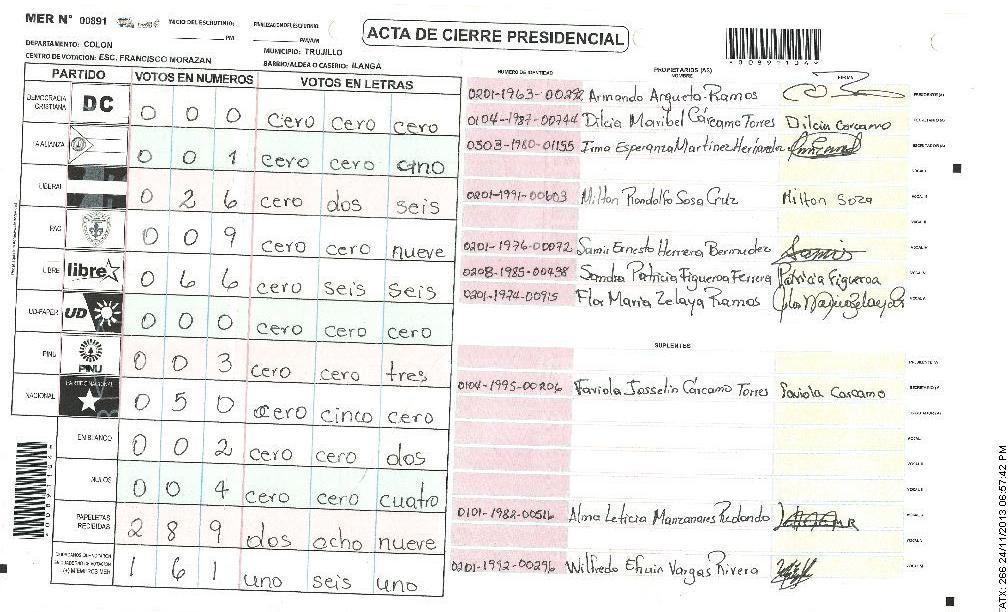 MER N° 00891
INICIO DEL ESCRUTINIO: PM
FINALIZACION DEL ESCRUTINIO: PM/AM
ACTA DE CIERRE PRESIDENCIAL
DEPARTAMENTO: COLON
MUNICIPIO: TRUJILLO
CENTRO DE VOTACION: ESC. FRANCISCO MORAZAN
BARRIO/ALDEA O CASERIO: ILANGA
PARTIDO VOTOS EN NUMEROS VOTOS EN LETRAS
DEMOCRACIA CRISTIANA DC 0 0 0 cero cero cero
LA ALIANZA 0 0 1 cero cero uno
LIBERAL 0 2 6 cero dos seis
PAC 0 0 9 cero cero nueve
LIBRE libre 0 6 6 cero seis seis
UD-FAPER UD 0 0 0 cero cero cero
PINU PINU 0 0 3 cero cero tres
NACIONAL PARTIDO NACIONAL 0 5 0 cero cinco cero
EN BLANCO 0 0 2 cero cero dos
NULOS 0 0 4 cero cero cuatro
PAPELETAS RECIBIDAS 2 8 9 dos ocho nueve
1 6 1 uno seis uno
NUMERO DE IDENTIDAD PROPIETARIOS (AS) NOMBRE FIRMA
0201-1963-00292 Armando Argueta Ramos PRESIDENTE(A)
0104-1987-00744 Dilcia Maribel Cárcamo Torres Dilcia Carcamo SECRETARIO(A)
0303-1980-01155 Irma Esperanza Martinez Hernandez ESCRUTADOR(A)
VOCAL I
0201-1991-00603 Milton Rondolfo Sosa Cruz Milton Soza VOCAL II
VOCAL III
0201-1976-00072 Samir Ernesto Herrera Bermudez Samir VOCAL IV
0208-1985-00498 Sandra Patricia Figueroa Ferrera Patricia Figueroa VOCAL V
0201-1974-00915 Flor Maria Zelaya Ramos
SUPLENTES
PRESIDENTE(A)
0104-1995-00206 Faviola Josselin Cárcamo Torres Faviola Carcamo SECRETARIO(A)
ESCRUTADOR(A)
VOCAL I
VOCAL II
VOCAL III
0101-1982-00516 Alma Leticia Manzanares Redondo
0201-1992-00296 Wilfredo Efrain Vargas Rivera
ATX: 266 24/11/2013 06:57:42 PM